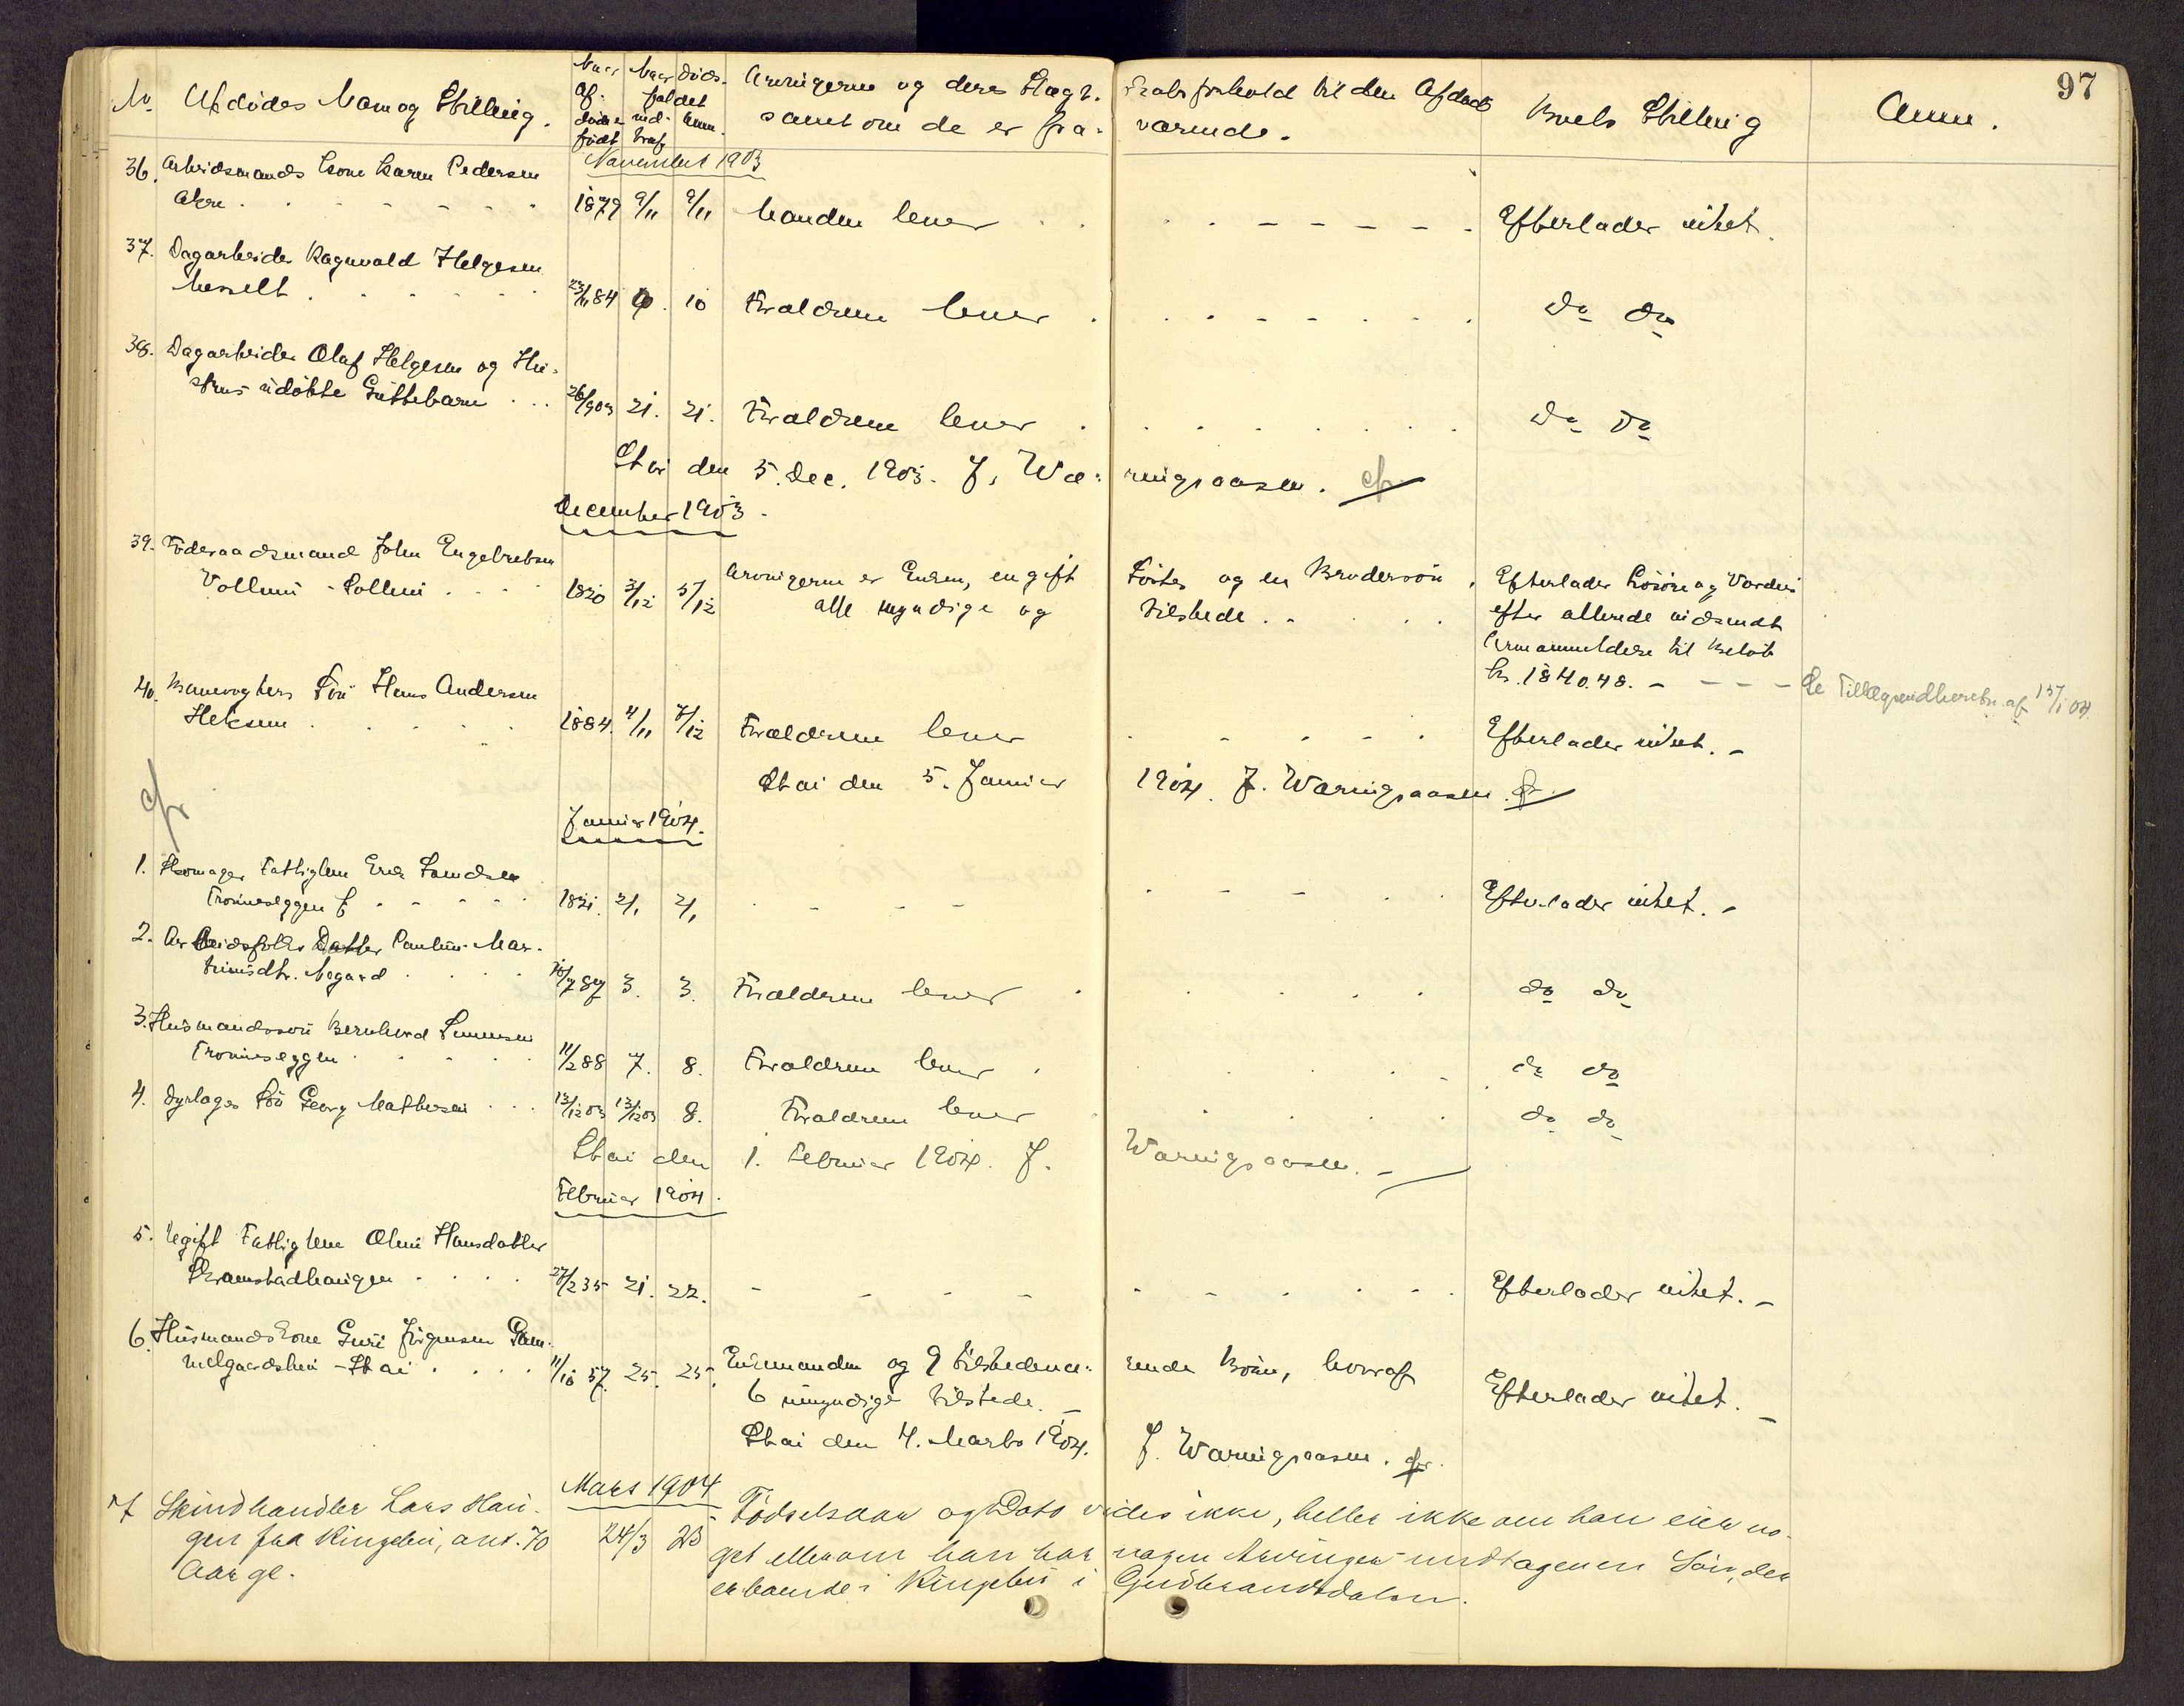 97
No. Afdødes Navn og Stilling. Naar Af- døde er født Naar dødsfaldet ind- traf Anm. Arvingerne og deres Slægt- skabsforhold til den Afdøde samt om de er fra- værende. Boets Stilling Anm.
November 1903
36. Arbeidsmands Kone Karen Pedersen
Akre . 1879 9/11 9/11 Manden lever Efterlader intet.
37. Dagarbeider Ragnvald Helgesen
Messelt . 23/11 84 10 Forældrene lever . do do
38. Dagarbeider Olaf Helgesen og Hu-
strus udøbte Guttebarn . . 903 21. 21. Forældrene lever . do do
Stai den 5. Dec. 1903. J. Wæ- ringsaasen. cfr
December 1903.
39. Føderaadsmand John Engebretsen
Vollum - Sollien . . . 1820 3/12 5/12 Arvingerne er Enken, en gift Søster og en Brodersøn, Efterlader Løsøre og Værdier
alle myndige og tilstede . . efter allerede indsendt
Anmeldelse til Beløb
Kr. 1840.48. - - - - Se Tillægsindberetn. af 15/1 04.
40. Banevogters Søn Hans Andersen
1884. 4/11 7/12 Forældrene lever Efterlader intet. -
Stai den 5. Januar 1904. J. Wæringsaasen. cfr
cfr
Januar 1904.
1. Skomager Fattiglem Erik
Trønneseggen 1821. 2/1 2/1 - - - Efterlader intet. -
2. Arbeidsfolks Datter Pauline Mar-
tinusdtr. Negard . . . 10/7 87 3. 3. Forældrene lever . do do
3. Husmandssøn Bernhard Simensen
Trønneseggen . 11/2 88 7. 8. Forældrene lever . do do
4. Søn Georg Mathesen . . . 13/12 03 13/12 03 8. Forældrene lever do do
Stai den 1. Februar 1904. J. Wæringsaasen. -
Februar 1904.
5. Ugift Fattiglem Oline Hansdatter
Skramstadhaugen . . . . 27/2 35 21. 22. - - - - Efterlader intet. -
6. Husmandskone Guri Jørgensen Gam-
melgaardshei - Stai . . . . 11/10 57. 25. 25. Enkemanden og 9 tilstedevæ- rende Børn, hvoraf
6 umyndige tilstede. - Efterlader intet. -
Stai den 4. Marts 1904. J. Wæringsaasen. cfr.
Mars 1904
7 Skindhandler Lars Hau- - Fødselsaar og Dato vides ikke, heller ikke om han eier no-
gen fra Ringebu, ant. 70 24/3 28 get eller om han har nogen Arvinger undtagen en Søn, der
Aar gl. er boende i Ringebu i Gudbrandsdalen.